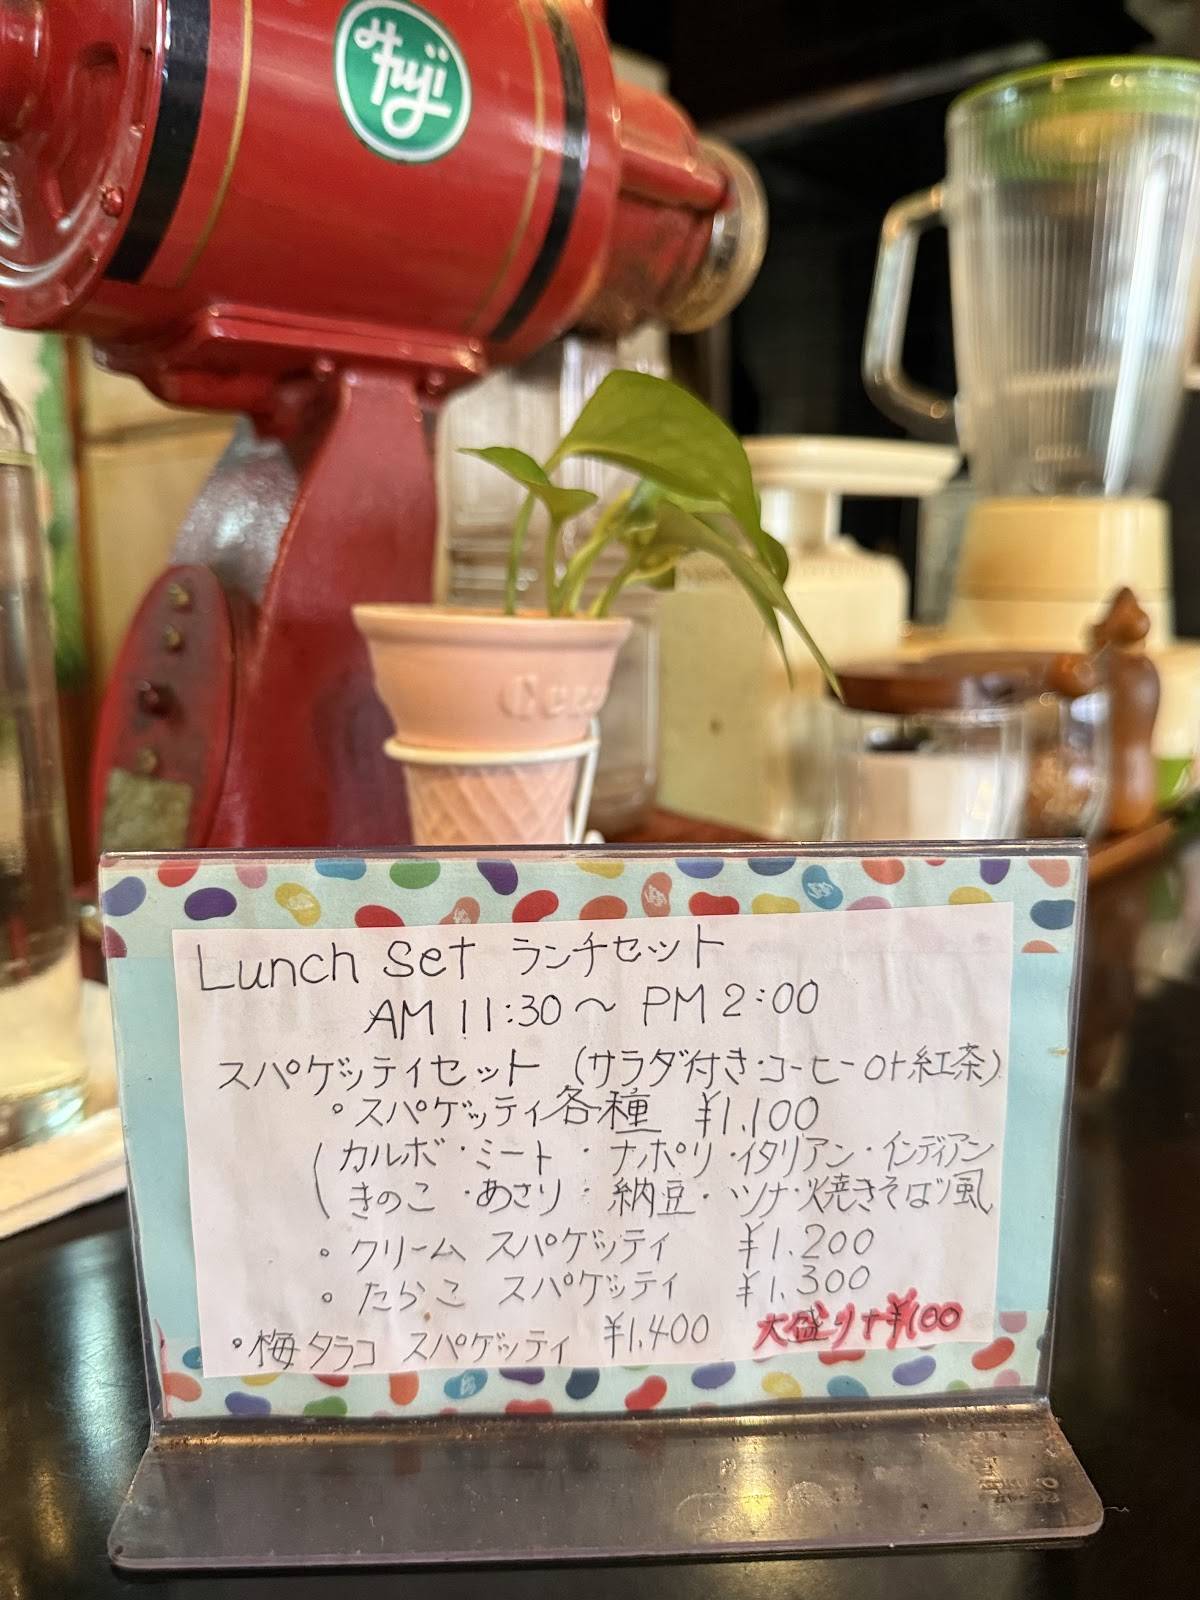 Fuji
Lunch Set ランチセット
AM 11:30 〜 PM 2:00
スパゲッティセット (サラダ付き・コーヒー or 紅茶)
。スパゲッティ各種 ¥1,100
(カルボ・ミート・ナポリ・イタリアン・インディアン
きのこ・あさり・納豆・ツナ・焼きそばソ風
。クリーム スパゲッティ ¥1.200
。たらこ スパゲッティ ¥1,300
。梅タラコ スパゲッティ ¥1,400 大盛り+¥100